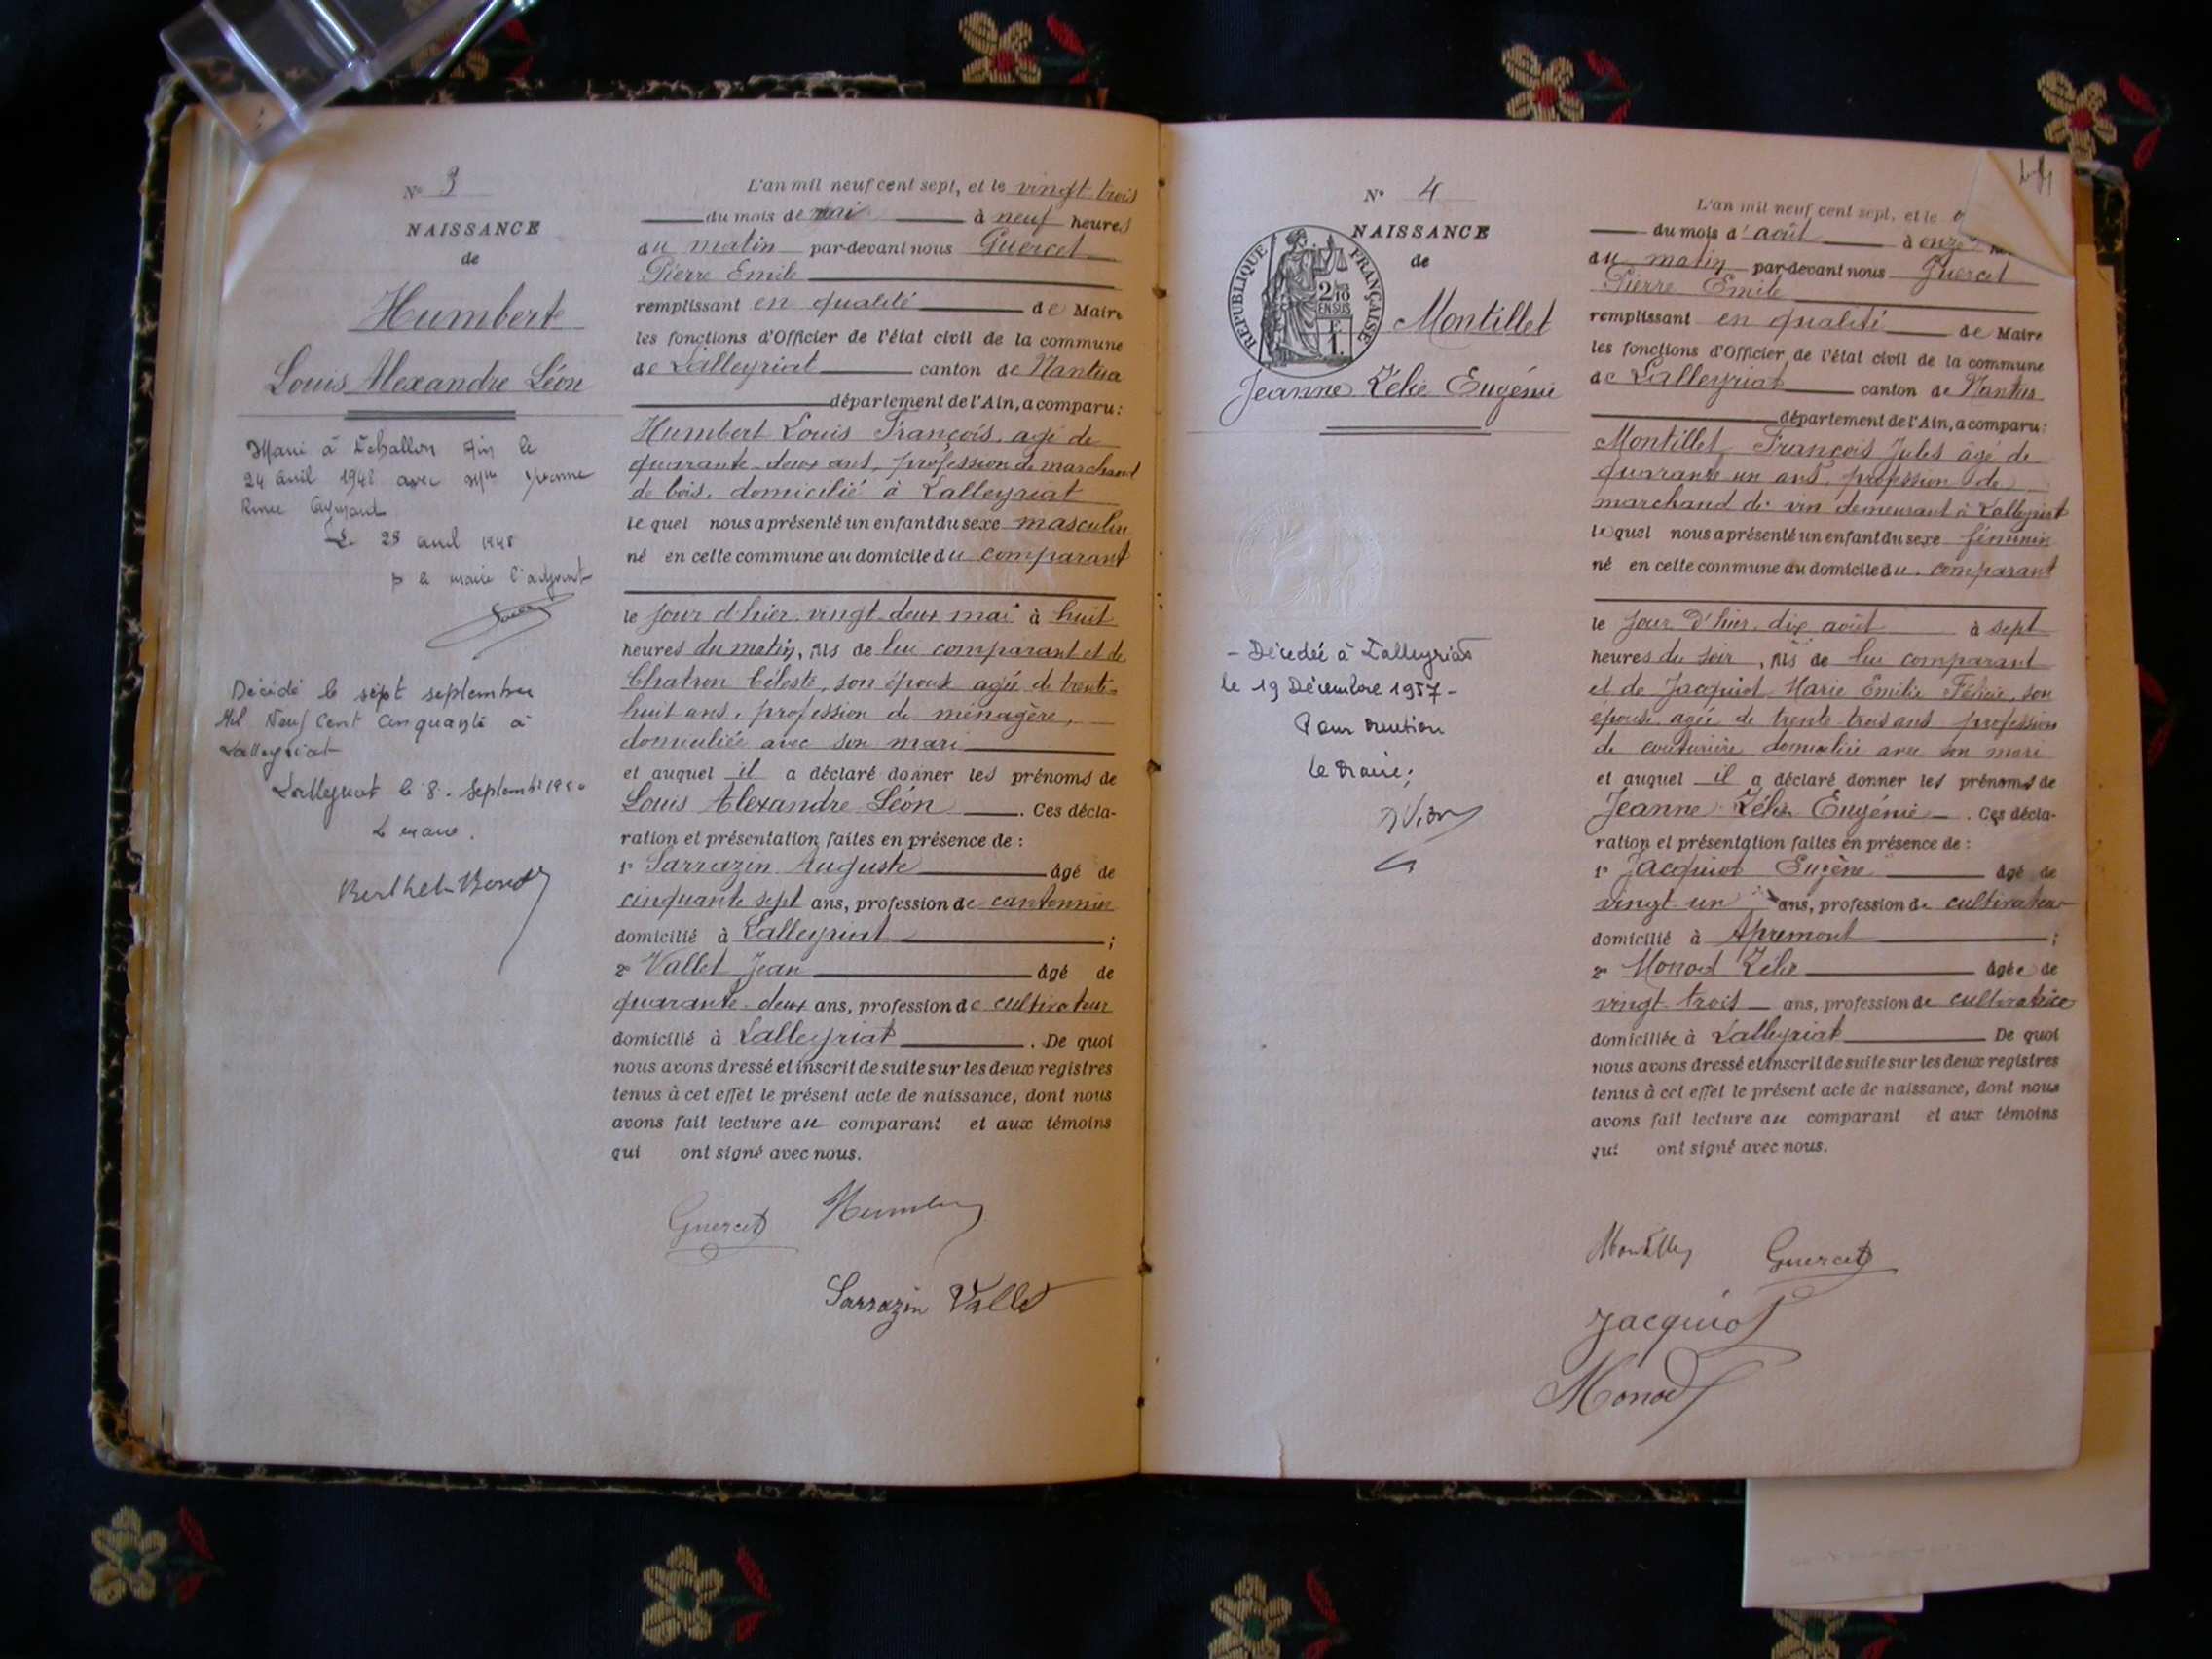 N° 3
NAISSANCE
de
Humbert
Louis Alexandre Léon
Marié à Echallon Ain le
24 avril 1948 avec Mlle Yvonne
Renée
Le 28 avril 1948
p le maire l'adjoint
Décédé le sept septembre
Mil Neuf Cent Cinquante à
Lalleyriat
Lalleyriat le 8. Septembre 1950
Le maire.
L'an mil neuf cent sept, et le vingt trois
du mois de mai à neuf heures
du matin par-devant nous Guercet
Pierre Emile
remplissant en qualité de Maire
les fonctions d'Officier de l'état civil de la commune
de Lalleyriat canton de Nantua
département de l'Ain, a comparu:
Humbert Louis François, agé de
quarante-deux ans, profession de marchand
de bois, domicilié à Lalleyriat
lequel nous a présenté un enfant du sexe masculin
né en cette commune au domicile du comparant
le jour d'hier vingt-deux mai à huit
heures du matin, fils de lui comparant et de
Chatron Céleste, son épouse agée de trente-
huit ans, profession de ménagère,
domiciliée avec son mari
et auquel il a déclaré donner les prénoms de
Louis Alexandre Léon. Ces décla-
ration et présentation faites en présence de :
1° Sarrazin Auguste âgé de
cinquante sept ans, profession de cantonnier
domicilié à Lalleyriat ;
2° Vallet Jean âgé de
quarante-deux ans, profession de cultivateur
domicilié à Lalleyriat. De quoi
nous avons dressé et inscrit de suite sur les deux registres
tenus à cet effet le présent acte de naissance, dont nous
avons fait lecture au comparant et aux témoins
qui ont signé avec nous.
Guercet Humbert
Sarrazin Vallet
N° 4
NAISSANCE
de
REPUBLIQUE FRANÇAISE
2/10
EN SUS
F.
1.
Montillet
Jeanne Zélie Eugénie
- Décédée à Lalleyriat
le 19 Décembre 1957 -
Pour mention
le Maire;
L'an mil neuf cent sept, et le
du mois d'août à onze
du matin par-devant nous Guercet
Pierre Emile
remplissant en qualité de Maire
les fonctions d'Officier de l'état civil de la commune
de Lalleyriat canton de Nantua
département de l'Ain, a comparu:
Montillet François Jules âgé de
quarante un ans, profession de
marchand de vin demeurant à Lalleyriat
lequel nous a présenté un enfant du sexe féminin
né en cette commune au domicile du comparant
le jour d'hier dix août à sept
heures du soir, fils de lui comparant
et de Jacquiot Marie Emilie Félicie, son
épouse agée de trente-trois ans profession
de couturière domiciliée avec son mari
et auquel il a déclaré donner les prénoms de
Jeanne Zélie Eugénie. Ces décla-
ration et présentation faites en présence de :
1° Jacquiot Eugène âgé de
vingt un ans, profession de cultivateur
domicilié à Apremont ;
2° Monod Zélie âgée de
vingt trois ans, profession de cultivatrice
domiciliée à Lalleyriat De quoi
nous avons dressé et inscrit de suite sur les deux registres
tenus à cet effet le présent acte de naissance, dont nous
avons fait lecture au comparant et aux témoins
qui ont signé avec nous.
Montillet Guercet
Jacquiot
Monod